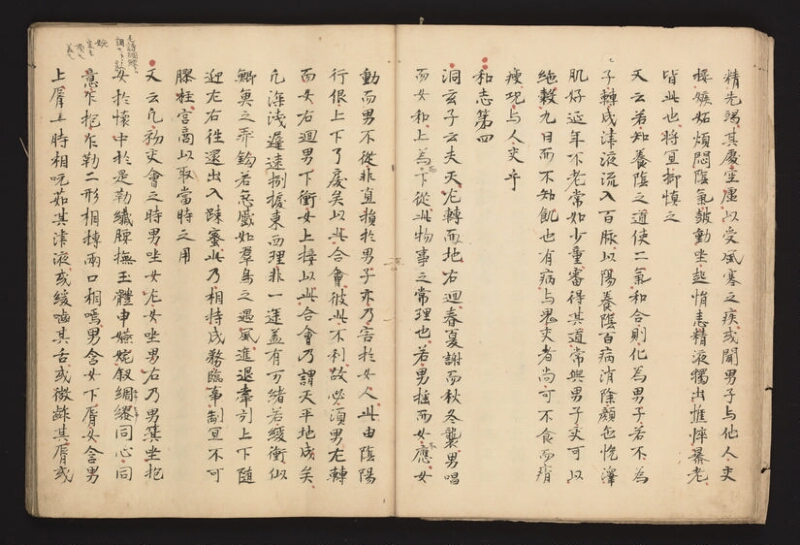 精先竭其處空虛以受風寒之疾或聞男子与他人交
接嫉妬煩悶陰氣皷動坐起悁恚精液獨出憔悴暴老
皆此也将宜抑慎之
又云若知養陰之道使二氣和合則化為男子若不為
子轉成津液流入百脉以陽養陰百病消除顏色悅澤
肌好延年不老常如少童審得其道常與男子交可以
絕穀九日而不知飢也有病与鬼交者尚可不食而痟
瘦况与人交乎
和志第四
洞玄子云夫天左轉而地右廻春夏謝而秋冬襲男唱
而女和上為下從此物事之常理也若男搖而女不應女
動而男不從非直損於男子亦乃害於女人此由陰陽
行佷上下了戾矣以此合會彼此不利故必須男左轉
而女右廻男下衝女上接以此合會乃謂天平地成矣
凡深淺遲速捌捩東西理非一途盖有万緒若緩衝似
鯽魚之弄鈎若急蹙如羣鳥之遇風進退牽引上下隨
迎左右往還出入踈密此乃相持成務臨事制宜不可
膠柱宮商以取當時之用
又云凡初交會之時男坐女左女坐男右乃男箕坐抱
女於懷中於是勒纖腰撫玉體申嬿婉叙綢繆同心同
意乍抱乍勒二形相搏兩口相嗎男含女下脣女含男
上脣一時相吮茹其津液或緩嚙其舌或微齚其脣或